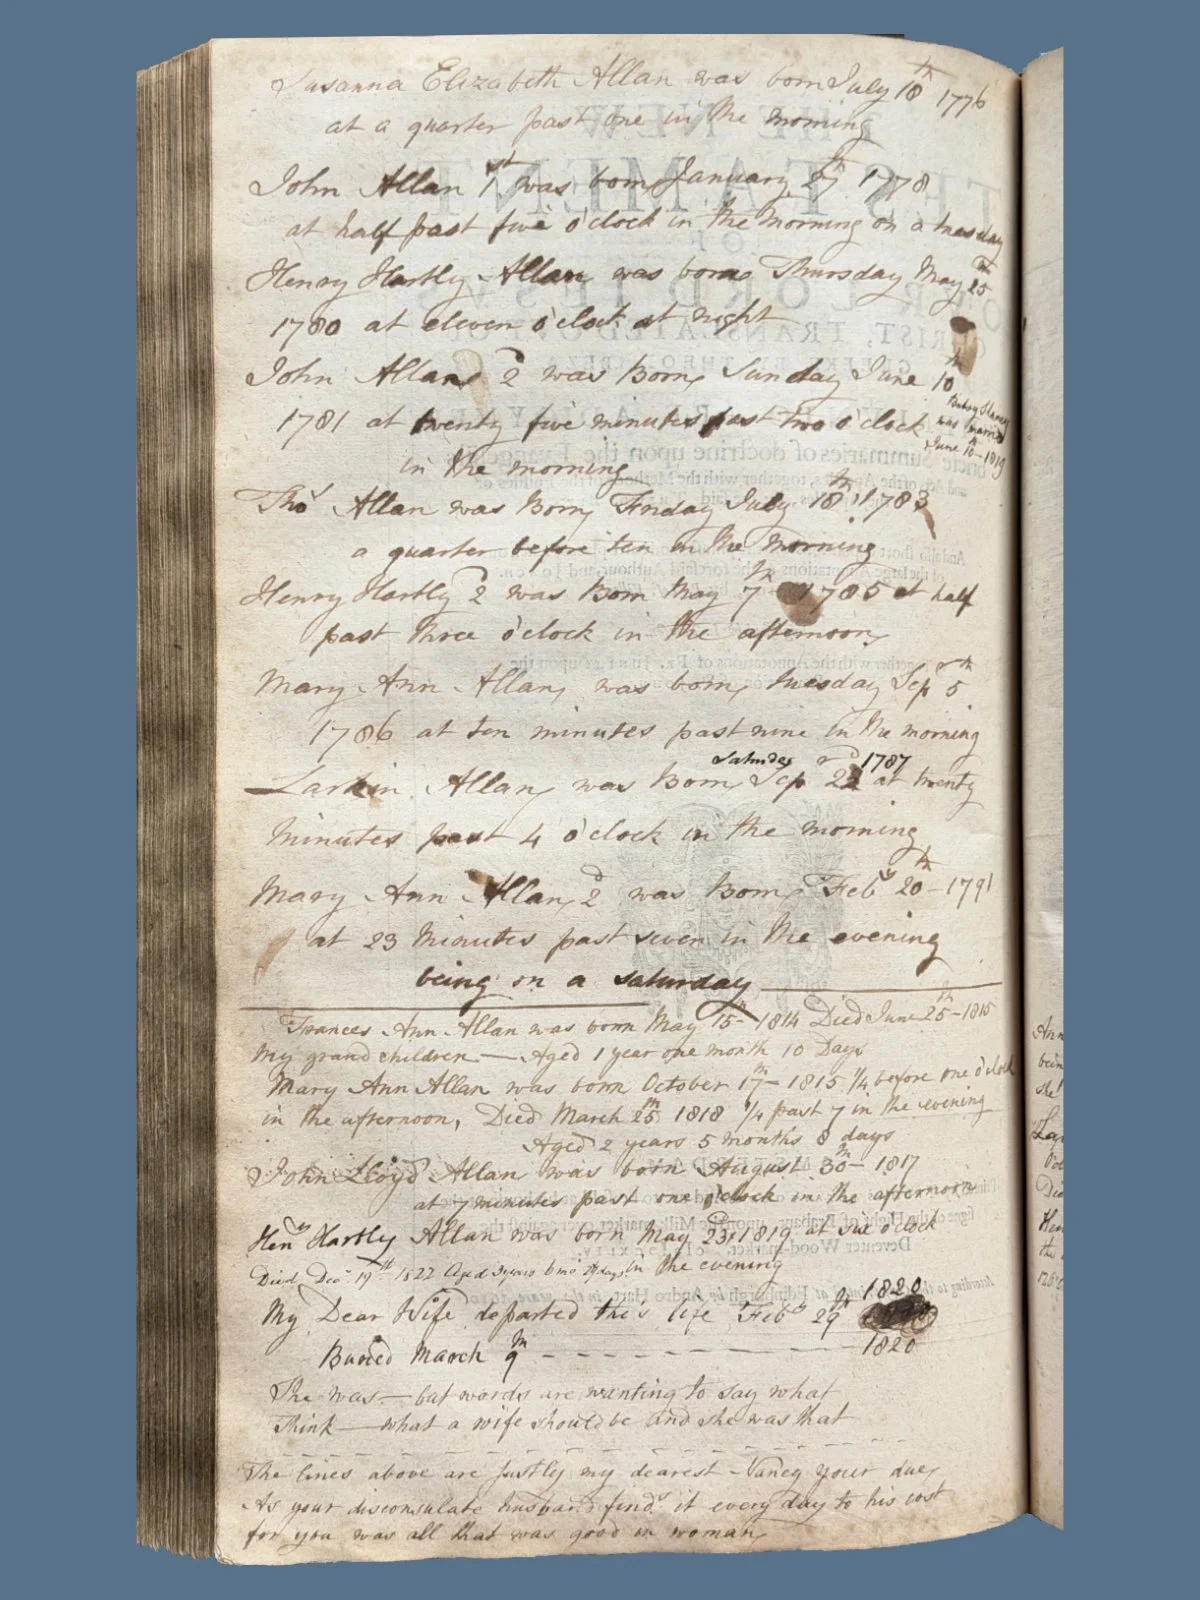 Susanna Elizabeth Allan was born July 18th 1776
at a quarter past one in the morning
John Allan 1st was born January 27th 1778
at half past five o'clock in the Morning on a tuesday
Henry Hartly Allan was born Thursday May 25th
1780 at eleven o'clock at night
John Allan 2d was Born Sunday June 10th
Betsy Slaney
was married
June 10-1819
1781 at twenty five minutes past two o'clock
in the morning
Thos Allan was Born Friday July 18th 1783
a quarter before ten in the morning
Henry Hartly 2d was Born May 7th 1785 at half
past three o'clock in the afternoon
Mary Ann Allan was born tuesday Sepr 5th
1786 at ten minutes past nine in the morning
Larkin Allan was Born Saturday Sep 22d 1787 at twenty
Minutes past 4 o'clock in the morning
Mary Ann Allan 2d was Born Feby 20th - 1791
at 23 Minutes past seven in the evening
being on a saturday
Frances Ann Allan was born May 15th - 1814 Died June 25th - 1815
My grand children — Aged 1 year one month 10 Days
Mary Ann Allan was born October 17th - 1815 1/4 before one o'clock
in the afternoon, Died March 25th 1818 1/4 past 7 in the evening
Aged 2 years 5 months 8 days
John Lloyd Allan was born August 30th - 1817
at 7 minutes past one o'clock in the afternoon
Heny Hartly Allan was born May 23d 1819 at six o'clock
Died Decr 19th 1822 Aged 3 years 6 mo 27 days in the evening
My Dear Wife departed this life Feby 29th 1820
Buried March 9th - - - - - - - 1820
She was — but words are wanting to say what
Think — what a wife should be and she was that
The lines above are justly my dearest Nancy your due
As your disconsulate husband finds it every day to his cost
for you was all that was good in woman